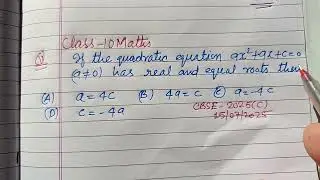 Class-10 Maths
Q If the quadratic equation ax²+ax+c=0
(a≠0) has real and equal roots then
(A) a=4c (B) 4a=c (C) a=-4c
(D) c=-4a CBSE-2025(C)
15/07/2025